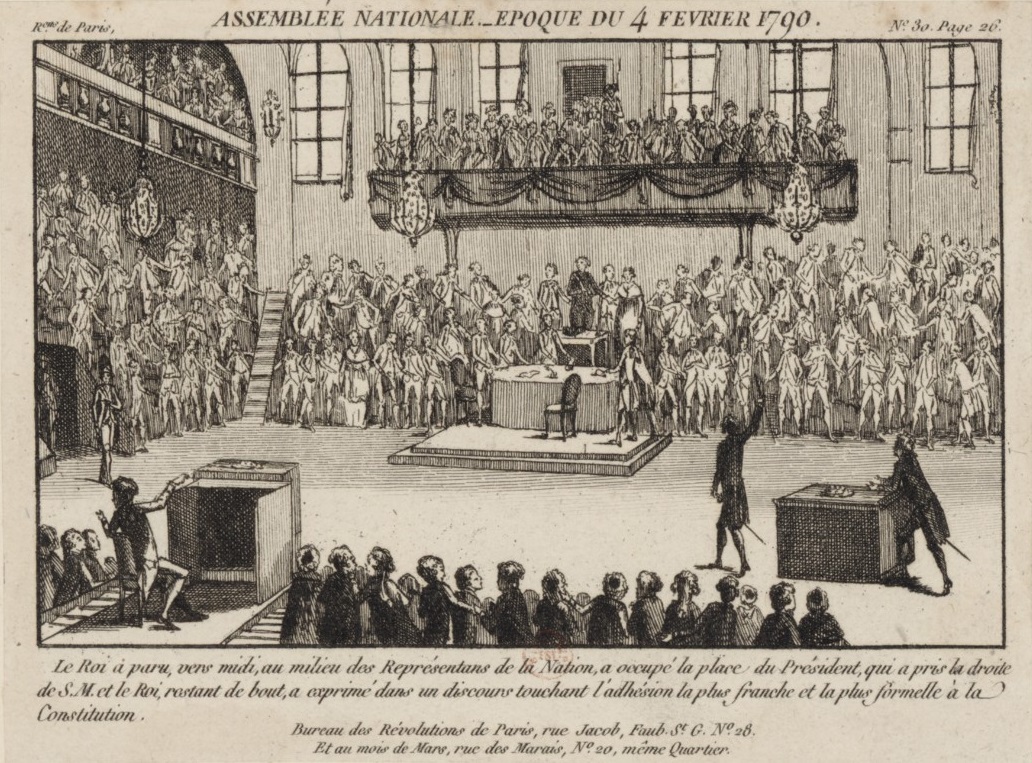 R.ons de Paris,
ASSEMBLÉE NATIONALE._EPOQUE DU 4 FEVRIER 1790.
N.o 30. Page 26.
Le Roi à paru, vers midi, au milieu des Représentans de la Nation, a occupé la place du Président, qui a pris la droite
de S.M. et le Roi, restant de bout, a exprimé dans un discours touchant l'adhésion la plus franche et la plus formelle à la
Constitution.
Bureau des Révolutions de Paris, rue Jacob, Faub. St. G. N.o 28.
Et au mois de Mars, rue des Marais, N.o 20, même Quartier.